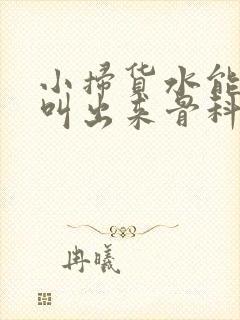 小掃货水能
叫出来骨科
冉曦